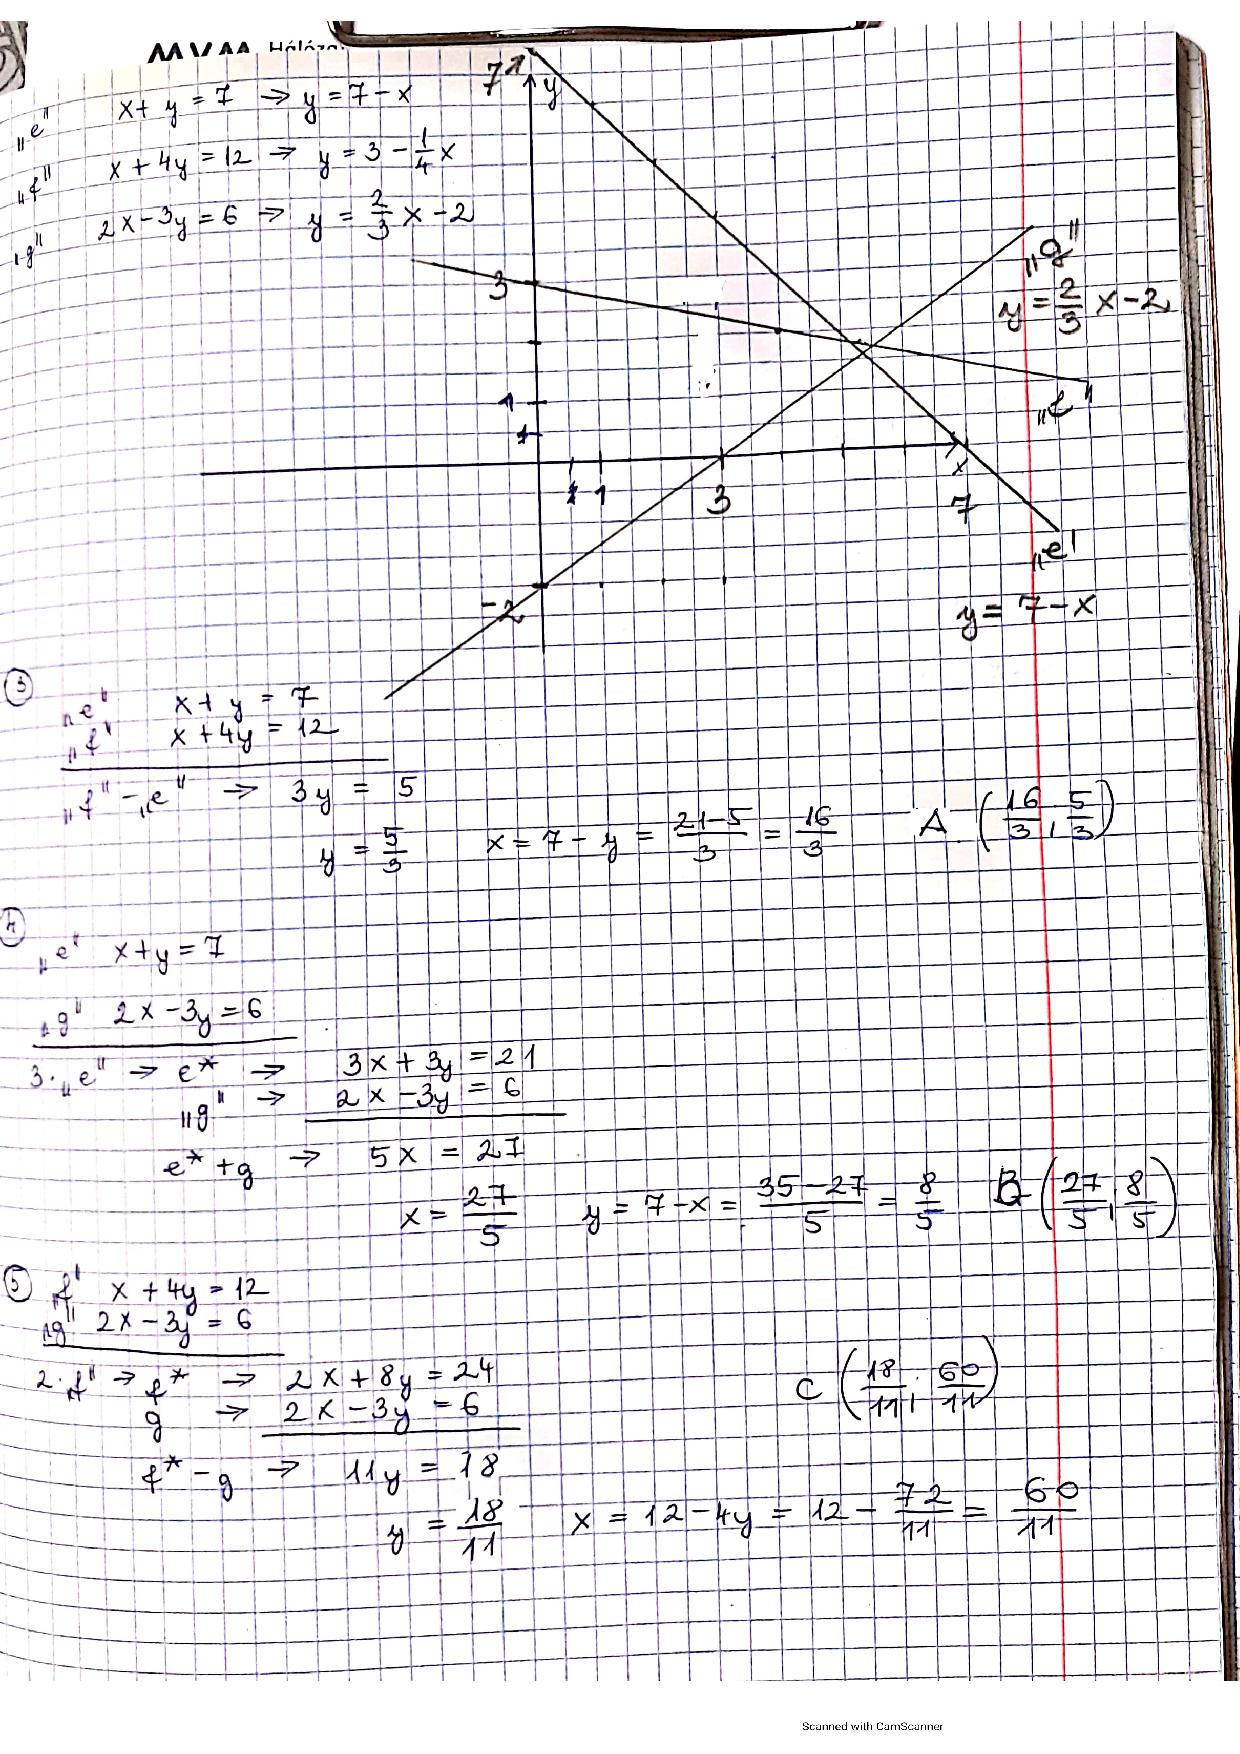 MVM Hálóza
„e" x + y = 7 → y = 7 - x
„f" x + 4y = 12 → y = 3 - 1/4 x
„g" 2x - 3y = 6 → y = 2/3 x - 2
7 y
3
1
1
1 1 3 x 7
-2
„g"
y = 2/3 x - 2
„f"
„e"
y = 7 - x
③ „e" x + y = 7
„f" x + 4y = 12
„f" - „e" → 3y = 5
y = 5/3 x = 7 - y = (21-5)/3 = 16/3 A (16/3 ; 5/3)
④ „e" x + y = 7
„g" 2x - 3y = 6
3·„e" → e* → 3x + 3y = 21
„g" → 2x - 3y = 6
e* + g → 5x = 27
x = 27/5 y = 7 - x = (35-27)/5 = 8/5 B (27/5 ; 8/5)
⑤ „f" x + 4y = 12
„g" 2x - 3y = 6
2·„f" → f* → 2x + 8y = 24
g → 2x - 3y = 6
C (18/11 ; 60/11)
f* - g → 11y = 18
y = 18/11 x = 12 - 4y = 12 - 72/11 = 60/11
Scanned with CamScanner